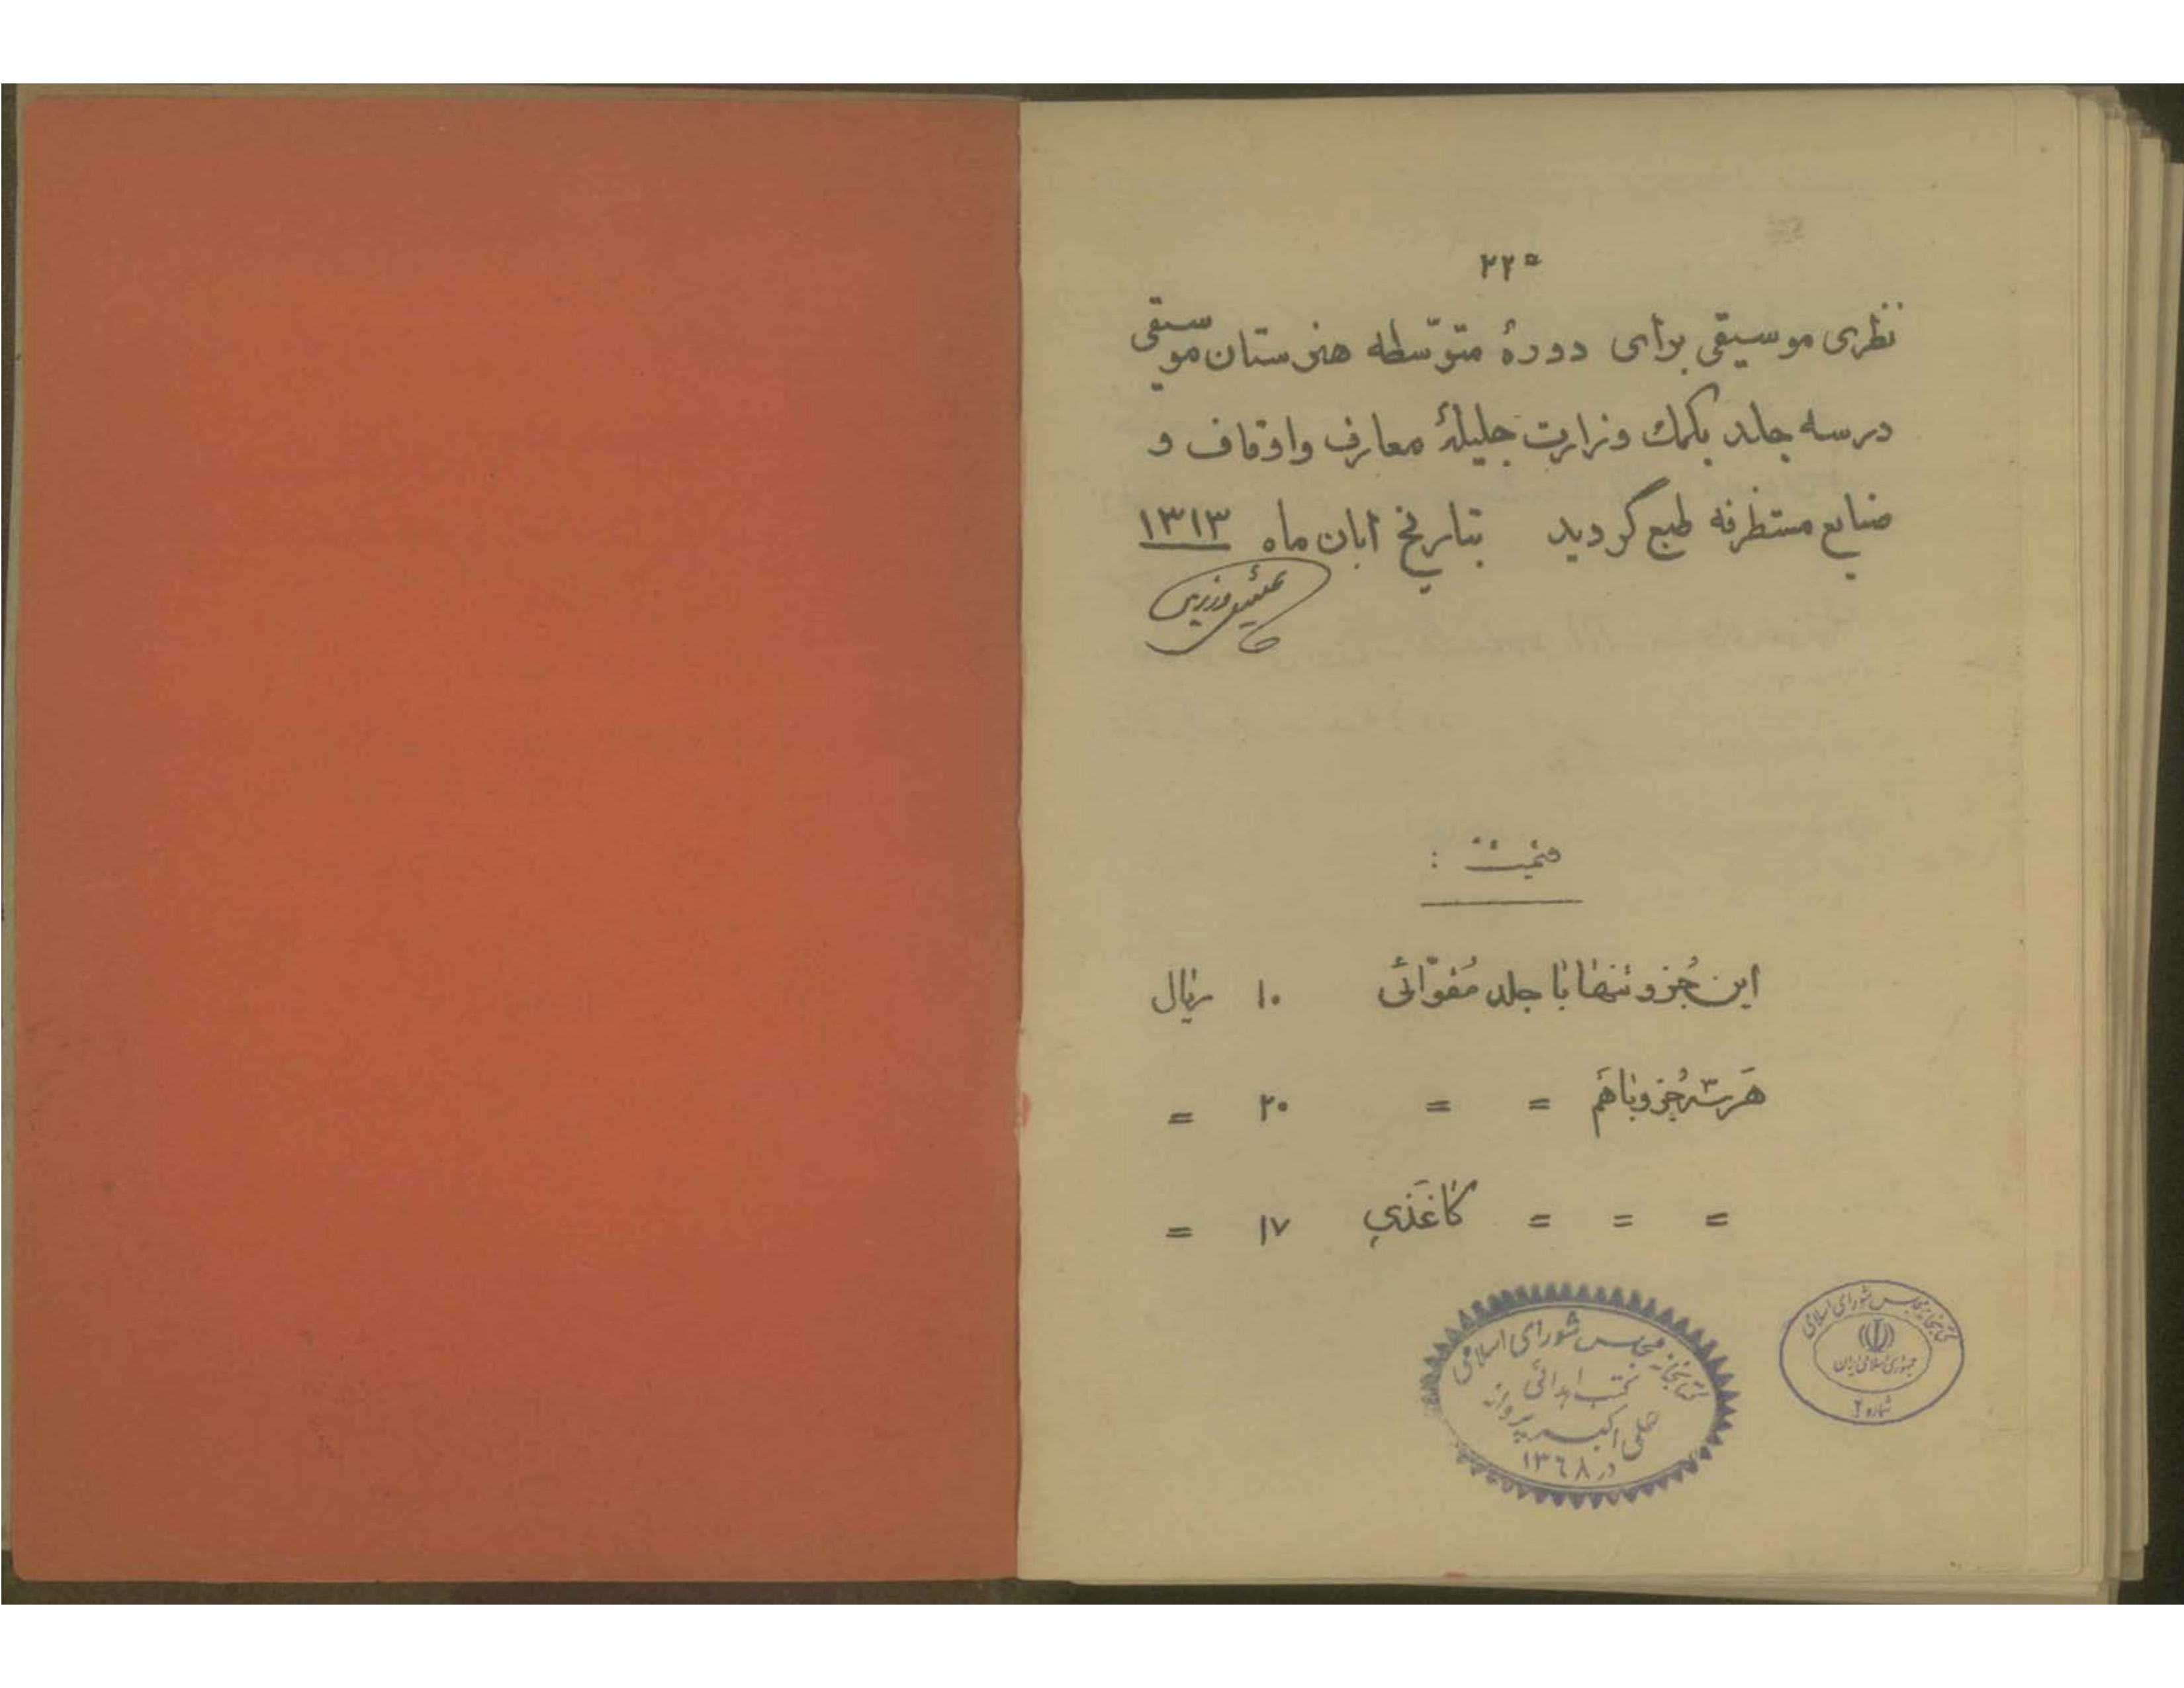 ۲۲۵
نظری موسیقی برای دورهٔ متوّسطه هنرستان موسیقی
در سه جلد بکمك وزارت جلیلهٔ معارف و اوقاف و
صنایع مستظرفه طبع گردید بتاریخ آبان ماه ۱۳۱۳
وزیری
قیمت :
این جُزو تنها با جلد مُقوّائی ۱۰ ریال
هَر سه جُزو باهَم = = ۲۰ =
= = = کاغَذی ۱۷ =
کتابخانه مجلس شورای اسلامی
کتب اهدائی
علی اکبر پرواز
در ۱۳۶۸
کتابخانه مجلس شورای اسلامی
جمهوری اسلامی ایران
شماره ۲